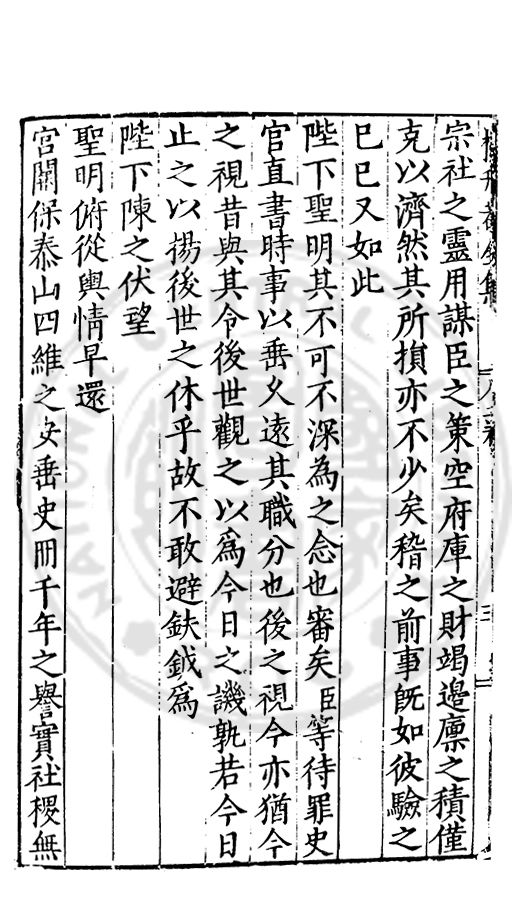 宗社之靈用謀臣之策空府庫之財竭邉廪之積僅
克以濟然其所損亦不少矣稽之前事既如彼驗之
巳巳又如此
陛下聖明其不可不深為之念也審矣臣等待罪史
官直書時事以垂久遠其職分也後之視今亦猶今
之視昔與其令後世觀之以爲今日之譏孰若今日
止之以揚後世之休乎故不敢避鈇鉞爲
陛下陳之伏望
聖明俯從輿情早還
宫闕保泰山四維之安垂史冊千年之譽實社稷無